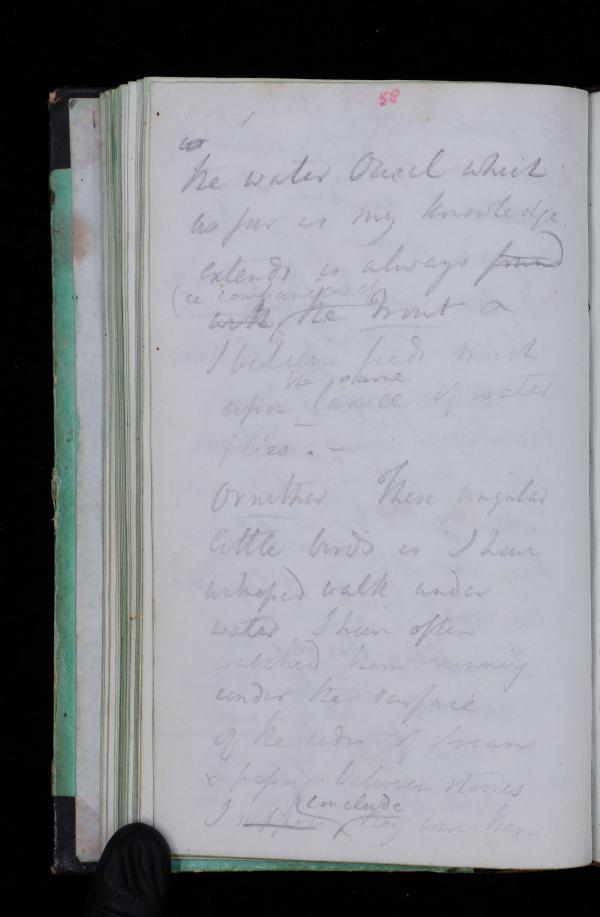 58
the water Ouzel which
as far as my knowledge
extends is always found
(a companion of
with the Trout &
I believe feeds much
the same
upon larvae of water
flies. —
Ornither These singular
little birds as I have
walk under
water I have often
watched them running
under the surface
of the of stream
& between stones
conclude
I suppose they were then